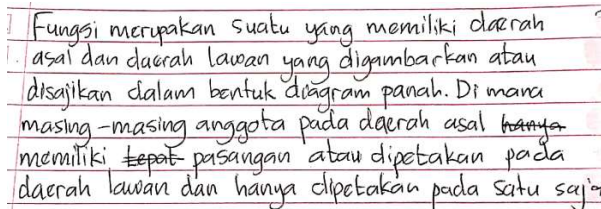 Fungsi merupakan suatu yang memiliki daerah
asal dan daerah lawan yang digambarkan atau
disajikan dalam bentuk diagram panah. Di mana
masing-masing anggota pada daerah asal hanya
memiliki tepat pasangan atau dipetakan pada
daerah lawan dan hanya dipetakan pada satu saja